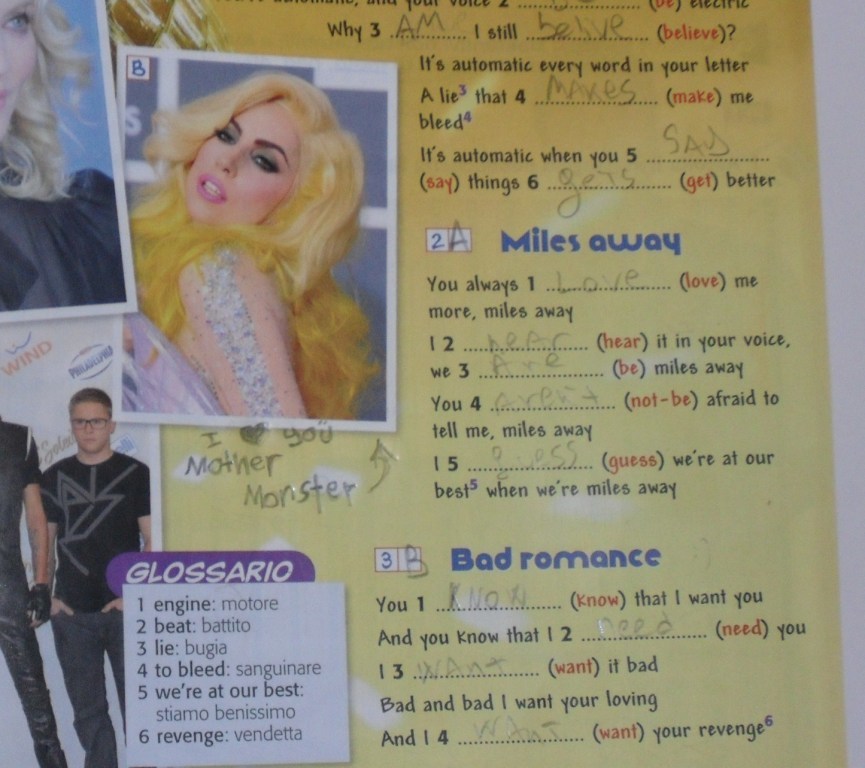 and your voice 2 .......... (be) electric
Why 3 AM I still belive (believe)?
It's automatic every word in your letter
A lie³ that 4 MAKES (make) me
bleed⁴
It's automatic when you 5 SAY
(say) things 6 gets (get) better
B
2 A Miles away
You always 1 Love (love) me
more, miles away
I 2 hear (hear) it in your voice,
we 3 Are (be) miles away
You 4 aren't (not-be) afraid to
tell me, miles away
I 5 guess (guess) we're at our
best⁵ when we're miles away
I ♥ you
Mother
Monster
WIND
PHILADELPHIA
3 B Bad romance
You 1 KNOW (know) that I want you
And you know that I 2 need (need) you
I 3 WANT (want) it bad
Bad and bad I want your loving
And I 4 WANT (want) your revenge⁶
GLOSSARIO
1 engine: motore
2 beat: battito
3 lie: bugia
4 to bleed: sanguinare
5 we're at our best:
stiamo benissimo
6 revenge: vendetta